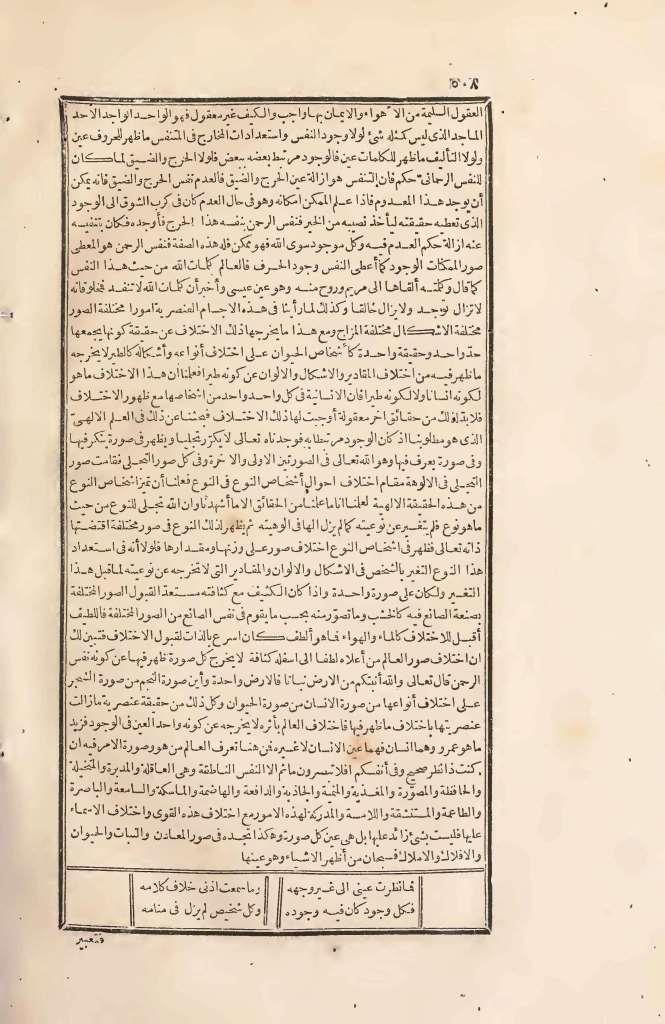 ٥٠٨
العقول السليمة من الاهواء والايمان بها واجب والكيف غير معقول فهو الواحد الواجد الأحد
الماجد الذى ليس كمثله شئ لولا وجود النفس واستعدادات المخارج فى المتنفس ما ظهر للحروف عين
ولولا التأليف ما ظهر للكلمات عين فالوجود مرتبط بعضه ببعض فلولا الحرج والضيق لما كان
للنفس الرحمانى حكم فان التنفس هو ازالة عين الحرج والضيق فالعدم نفس الحرج والضيق فانه يمكن
أن يوجد هذا المعدوم فاذا علم الممكن امكانه وهو فى حال العدم كان فى كرب الشوق الى الوجود
الذى تعطيه حقيقته ليأخذ نصيبه من الخير فنفس الرحمن بنفسه هذا الحرج فأوجده فكان تنفيسه
عنه ازالة حكم العدم فيه وكل موجود سوى الله فهو ممكن فله هذه الصفة فنفس الرحمن هو المعطى
صور الممكنات الوجود كما أعطى النفس وجود الحرف فالعالم كلمات الله من حيث هذا النفس
كما قال وكلمته ألقاها الى مريم وروح منه وهو عين عيسى وأخبر أن كلمات الله لا تنفد فخلوقاته
لا تزال توجد ولا يزال خالقا وكذلك لما رأينا فى هذه الاجسام العنصرية امورا مختلفة الصور
مختلفة الاشكال مختلفة المزاج ومع هذا ما يخرجها ذلك الاختلاف عن حقيقة كونها يجمعها
حد واحد وحقيقة واحدة كأشخاص الحيوان على اختلاف أنواعه وأشكاله كالطير لا يخرجه
ما ظهر فيه من اختلاف المقادير والاشكال والالوان عن كونه طيرا فعلمنا أن هذا الاختلاف ما هو
لكونه انسانا ولا لكونه طيرا فان الانسانية فى كل واحد واحد من اشخاصها مع ظهور الاختلاف
فلا بد لذلك من حقائق اخر معقولة أوجبت لها ذلك الاختلاف فبحثنا عن ذلك فى العلم الالهى
الذى هو مطلوبنا اذ كان الوجود مرتبطا به فوجدناه تعالى لا يكرر تجليا ويظهر فى صورة ينكر فيها
وفى صورة يعرف فيها وهو الله تعالى فى الصورتين الاولى والآخرة وفى كل صور التجلى فقامت صور
التجلى فى الالوهة مقام اختلاف احوال أشخاص النوع فى النوع فعلمنا أن تميز اشخاص النوع
من هذه الحقيقة الالهية لعلمنا انا ما علمنا من الحقائق الا ما أشهدنا وان الله تجلى للنوع من حيث
ما هو نوع فلم يتغير عن نوعيته كما لم يزل الها فى الوهيته ثم يظهر لذلك النوع فى صور مختلفة اقتضتها
ذاته تعالى فظهر فى اشخاص النوع اختلاف صور على وزنها ومقدارها فلولا أنه فى استعداد
هذا النوع التغير بالشخص فى الاشكال والالوان والمقادير التى لا تخرجه عن نوعيته لما قبل هذا
التغير ولكان على صورة واحدة واذا كان الكثيف مع كثافته مستعدا لقبول الصور المختلفة
بصنعة الصانع فيه كالخشب وما تصور منه بحسب ما يقوم فى نفس الصانع من الصور المختلفة فاللطيف
أقبل للاختلاف كالماء والهواء فما هو ألطف كان اسرع بالذات لقبول الاختلاف فتبين لك
ان اختلاف صور العالم من أعلاه لطفا الى اسفله كثافة لا يخرج كل صورة ظهر فيها عن كونه نفس
الرحمن قال تعالى والله أنبتكم من الارض نباتا فالارض واحدة وأين صورة النجم من صورة الشجر
على اختلاف أنواعها من صورة الانسان من صورة الحيوان وكل ذلك من حقيقة عنصرية ما زالت
عنصريتها باختلاف ما ظهر فيها فاختلاف العالم بأثره لا يخرجه عن كونه واحد العين فى الوجود فزيد
ما هو عمرو وهما انسان فهما عين الانسان لا غيره فمن هنا تعرف العالم من هو وصورة الامر فيه ان
كنت ذا نظر صحيح وفى أنفسكم افلا تبصرون ما ثم الا النفس الناطقة وهى العاقلة والمدبرة والمتخيلة
والحافظة والمصورة والمغذية والمنمية والجاذبة والدافعة والهاضمة والماسكة والسامعة والباصرة
والطاعمة والمستنشقة واللامسة والمدركة لهذه الامور مع اختلاف هذه القوى واختلاف الاسماء
عليها فليست بشئ زائد عليها بل هى عين كل صورة وهكذا تجده فى صور المعادن والنبات والحيوان
والافلاك والاملاك فسبحان من أظهر الاشياء وهو عينها
فما نظرت عينى الى غير وجهه وما سمعت اذنى خلاف كلامه
فكل وجود كان فيه وجوده وكل شخيص لم يزل فى منامه
فتعبير